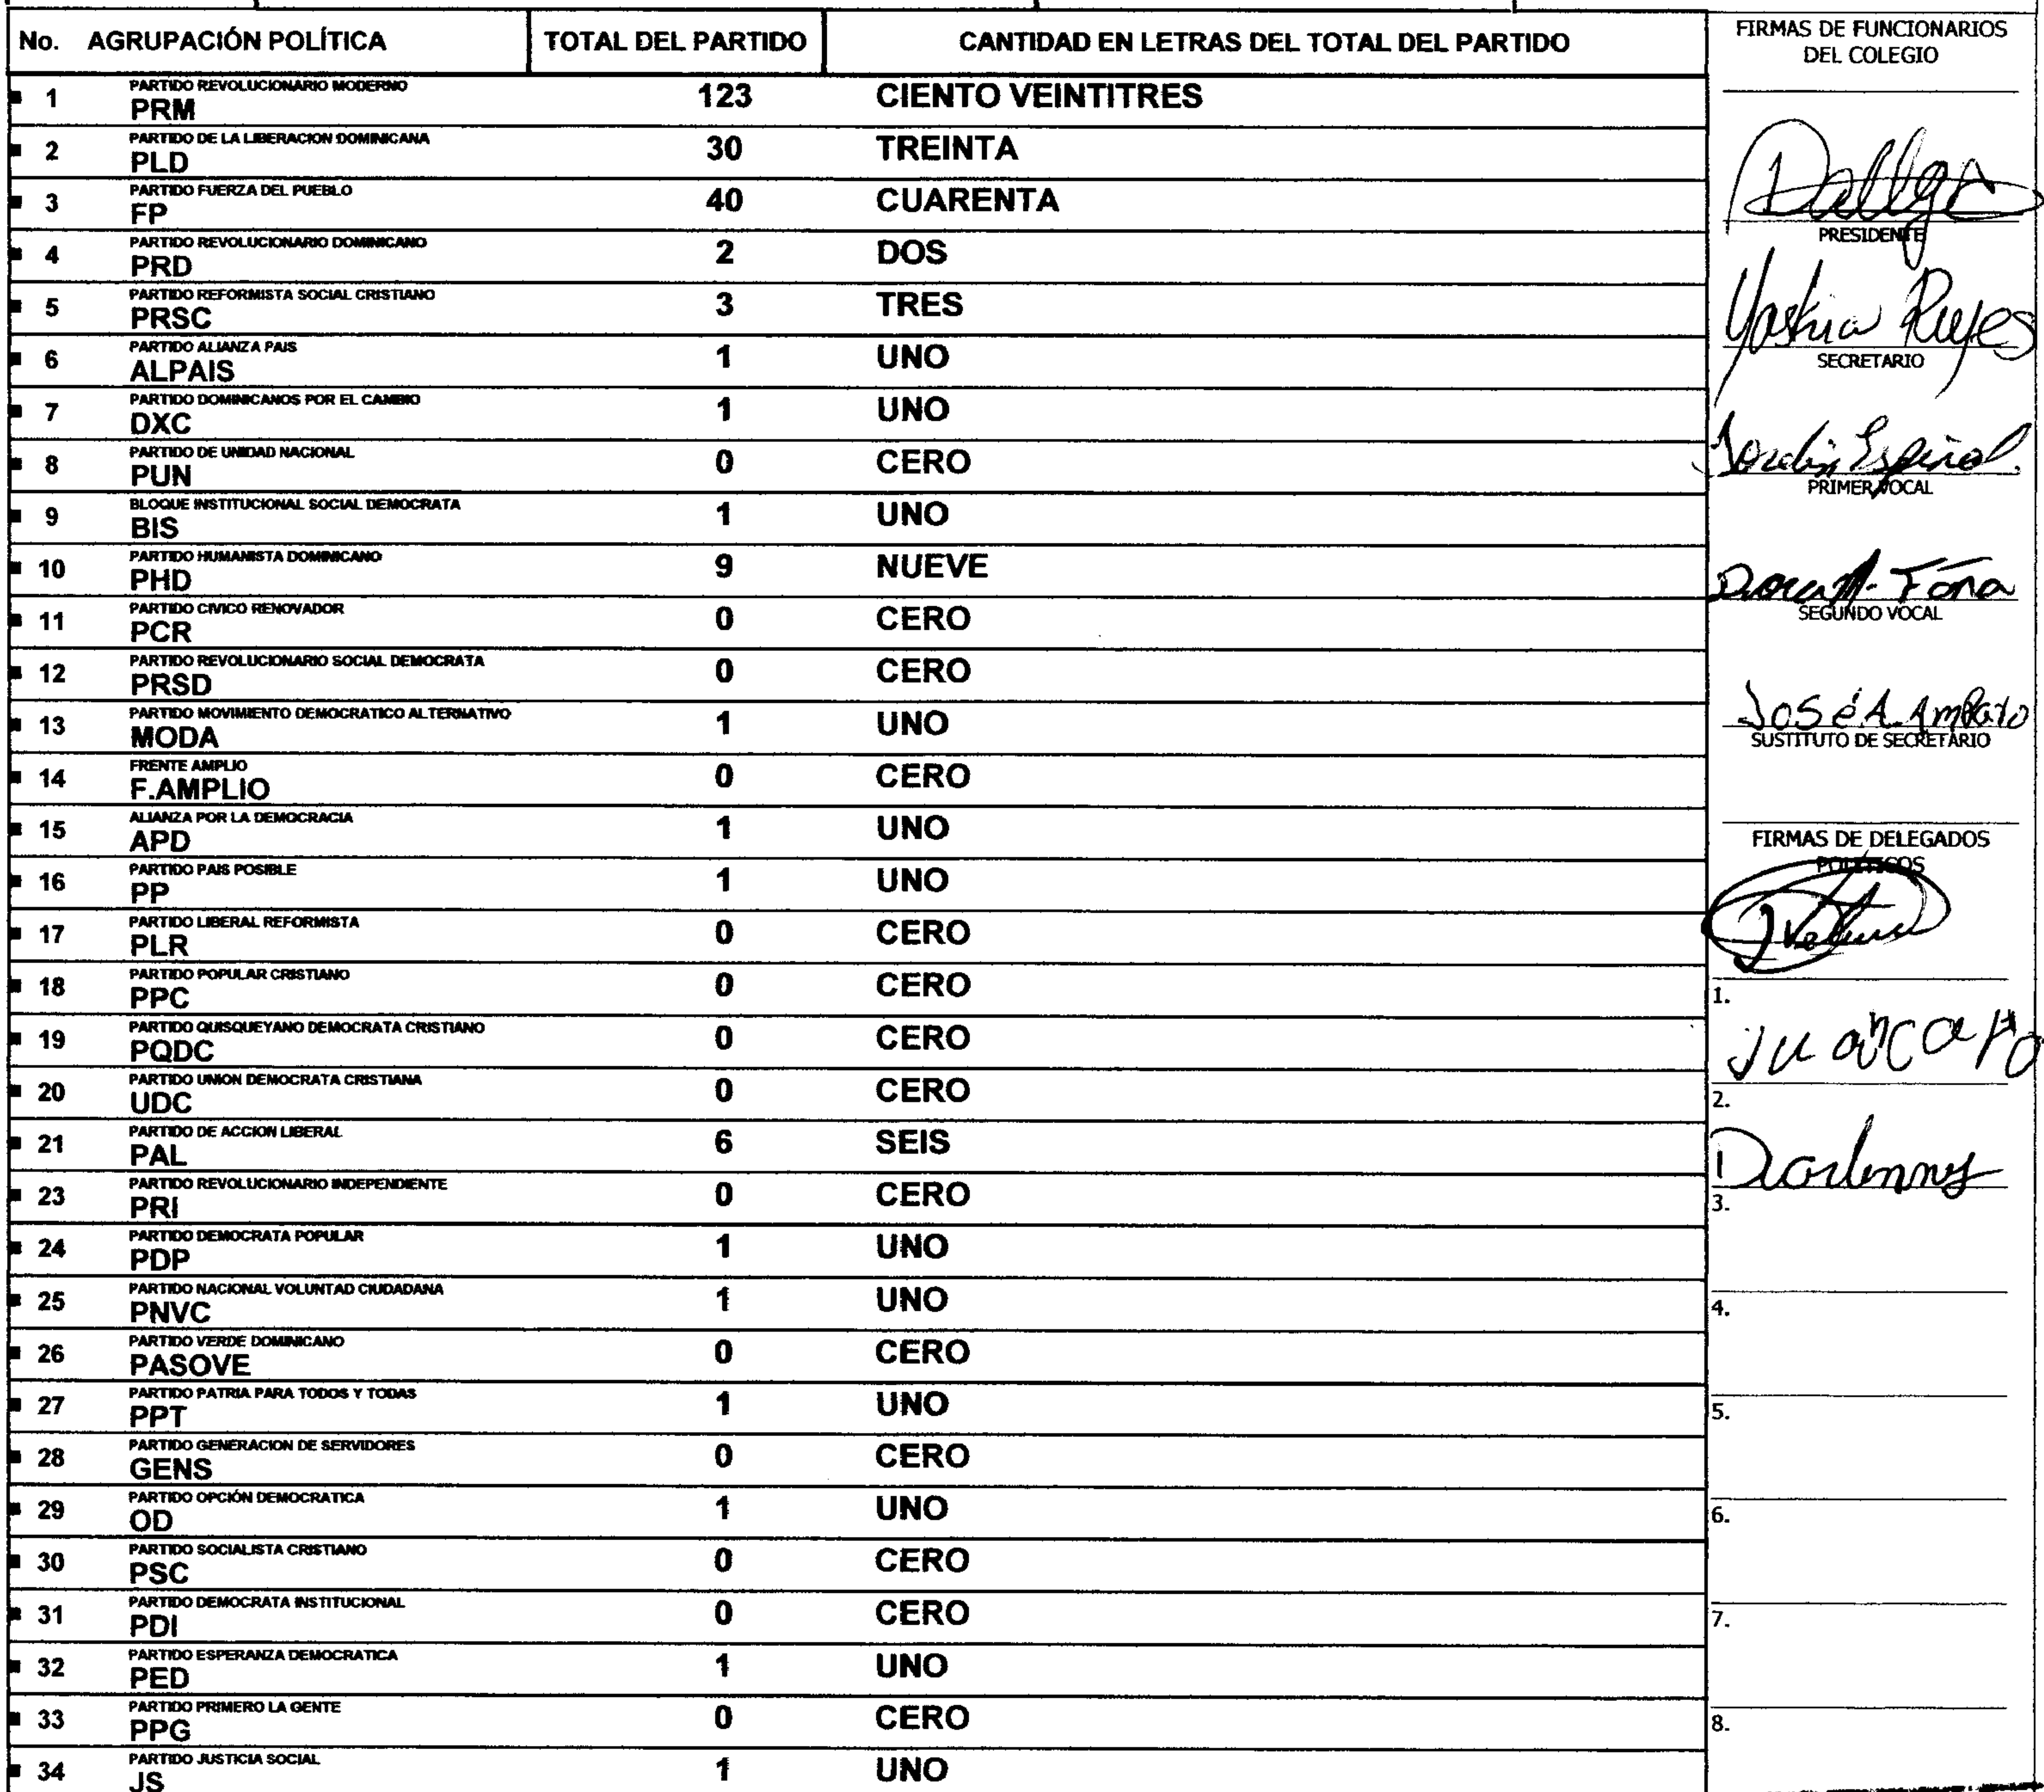 No. AGRUPACIÓN POLÍTICA TOTAL DEL PARTIDO CANTIDAD EN LETRAS DEL TOTAL DEL PARTIDO
PARTIDO REVOLUCIONARIO MODERNO
1 PRM 123 CIENTO VEINTITRES
PARTIDO DE LA LIBERACION DOMINICANA
2 PLD 30 TREINTA
PARTIDO FUERZA DEL PUEBLO
3 FP 40 CUARENTA
PARTIDO REVOLUCIONARIO DOMINICANO
4 PRD 2 DOS
PARTIDO REFORMISTA SOCIAL CRISTIANO
5 PRSC 3 TRES
PARTIDO ALIANZA PAIS
6 ALPAIS 1 UNO
PARTIDO DOMINICANOS POR EL CAMBIO
7 DXC 1 UNO
PARTIDO DE UNIDAD NACIONAL
8 PUN 0 CERO
BLOQUE INSTITUCIONAL SOCIAL DEMOCRATA
9 BIS 1 UNO
PARTIDO HUMANISTA DOMINICANO
10 PHD 9 NUEVE
PARTIDO CIVICO RENOVADOR
11 PCR 0 CERO
PARTIDO REVOLUCIONARIO SOCIAL DEMOCRATA
12 PRSD 0 CERO
PARTIDO MOVIMIENTO DEMOCRATICO ALTERNATIVO
13 MODA 1 UNO
FRENTE AMPLIO
14 F.AMPLIO 0 CERO
ALIANZA POR LA DEMOCRACIA
15 APD 1 UNO
PARTIDO PAIS POSIBLE
16 PP 1 UNO
PARTIDO LIBERAL REFORMISTA
17 PLR 0 CERO
PARTIDO POPULAR CRISTIANO
18 PPC 0 CERO
PARTIDO QUISQUEYANO DEMOCRATA CRISTIANO
19 PQDC 0 CERO
PARTIDO UNION DEMOCRATA CRISTIANA
20 UDC 0 CERO
PARTIDO DE ACCION LIBERAL
21 PAL 6 SEIS
PARTIDO REVOLUCIONARIO INDEPENDIENTE
23 PRI 0 CERO
PARTIDO DEMOCRATA POPULAR
24 PDP 1 UNO
PARTIDO NACIONAL VOLUNTAD CIUDADANA
25 PNVC 1 UNO
PARTIDO VERDE DOMINICANO
26 PASOVE 0 CERO
PARTIDO PATRIA PARA TODOS Y TODAS
27 PPT 1 UNO
PARTIDO GENERACION DE SERVIDORES
28 GENS 0 CERO
PARTIDO OPCIÓN DEMOCRATICA
29 OD 1 UNO
PARTIDO SOCIALISTA CRISTIANO
30 PSC 0 CERO
PARTIDO DEMOCRATA INSTITUCIONAL
31 PDI 0 CERO
PARTIDO ESPERANZA DEMOCRATICA
32 PED 1 UNO
PARTIDO PRIMERO LA GENTE
33 PPG 0 CERO
PARTIDO JUSTICIA SOCIAL
34 JS 1 UNO
FIRMAS DE FUNCIONARIOS
DEL COLEGIO
PRESIDENTE
Reyes
SECRETARIO
Espinal
PRIMER VOCAL
SEGUNDO VOCAL
José A. Amparo
SUSTITUTO DE SECRETARIO
FIRMAS DE DELEGADOS
POLITICOS
1.
2.
3.
4.
5.
6.
7.
8.